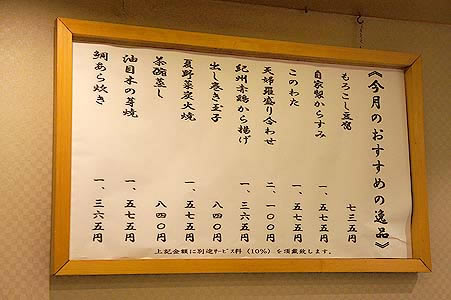 《今月のおすすめの逸品》
もろこし豆腐 七三五円
自家製からすみ 一、五七五円
このわた 一、五七五円
天婦羅盛り合わせ 二、一〇〇円
紀州赤鶏から揚げ 一、三六五円
出し巻き玉子 八四〇円
夏野菜炭火焼 一、五七五円
茶碗蒸し 八四〇円
油目木の芽焼 一、五七五円
鯛あら炊き 一、三六五円
上記金額に別途ｻｰﾋﾞｽ料（10%）を頂戴致します。